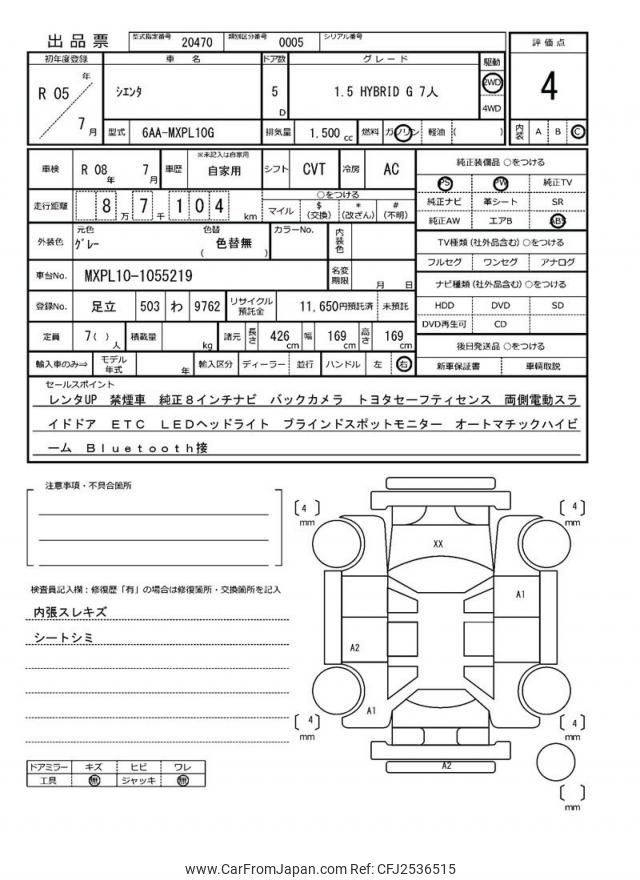 出品票 型式指定番号 20470 類別区分番号 0005 シリアル番号
評価点
4
内装 A B C
初年度登録 車名 ドア数 グレード 駆動
R 05 年 7 月
シエンタ 5 D 1.5 HYBRID G 7人 2WD
4WD
型式 6AA-MXPL10G 排気量 1,500 cc 燃料 ガソリン 軽油 ( )
車検 R 08 年 7 月 車歴 ※未記入は自家用 自家用 シフト CVT 冷房 AC
走行距離 8 万 7 千 1 0 4 km
○をつける
マイル $ (交換) * (改ざん) # (不明)
外装色 元色 グレー 色替 色替無 ( ) カラーNo. 内装色
車台No. MXPL10-1055219 名変期限 月 日
登録No. 足立 503 わ 9762 リサイクル預託金 11,650円預託済 未預託
定員 7( ) 人 積載量 kg 諸元 長さ 426 cm 幅 169 cm 高さ 169 cm
輸入車のみ⇒ モデル年式 年 輸入区分 ディーラー 並行 ハンドル 左 右
純正装備品 ○をつける
PS PW 純正TV
純正ナビ 革シート SR
純正AW エアB ABS
TV種類(社外品含む)○をつける
フルセグ ワンセグ アナログ
ナビ種類(社外品含む)○をつける
HDD DVD SD
DVD再生可 CD
後日発送品 ○をつける
新車保証書 車輌取説
セールスポイント
レンタUP 禁煙車 純正8インチナビ バックカメラ トヨタセーフティセンス 両側電動スラ
イドドア ETC LEDヘッドライト ブラインドスポットモニター オートマチックハイビ
ーム Bluetooth接
注意事項・不具合箇所
検査員記入欄:修復歴「有」の場合は修復箇所・交換箇所を記入
内張スレキズ
シートシミ
ドアミラー キズ ヒビ ワレ
工具 無 ジャッキ 無
[ 4 ] mm
[ 4 ] mm
XX
A1
A2
A1
[ 4 ] mm
[ 4 ] mm
A2
[ ] mm
www.CarFromJapan.com Ref: CFJ2536515